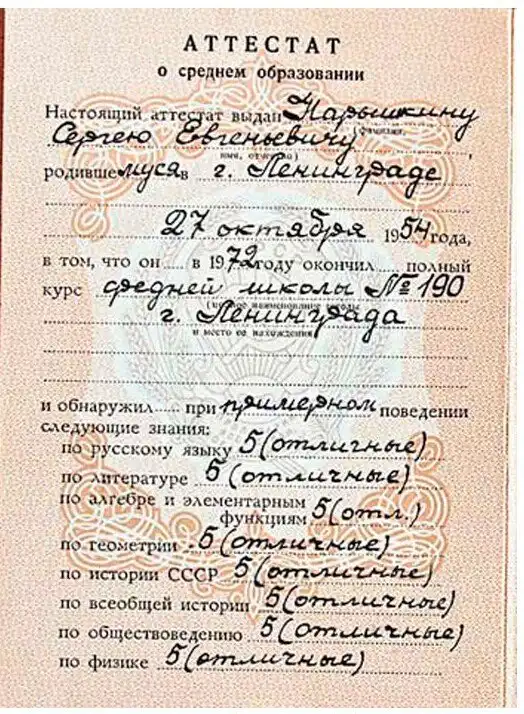 АТТЕСТАТ
о среднем образовании
Настоящий аттестат выдан Нарышкину
(фамилия,
Сергею Евгеньевичу,
имя, отчество)
родившемуся в г. Ленинграде
27 октября 1954 года,
в том, что он в 1972 году окончил полный
курс средней школы № 190
(полное наименование школы
г. Ленинграда
и место ее нахождения)
и обнаружил при примерном поведении
следующие знания:
по русскому языку 5 (отличные)
по литературе 5 (отличные)
по алгебре и элементарным
функциям 5 (отл.)
по геометрии 5 (отличные)
по истории СССР 5 (отличные)
по всеобщей истории 5 (отличные)
по обществоведению 5 (отличные)
по физике 5 (отличные)